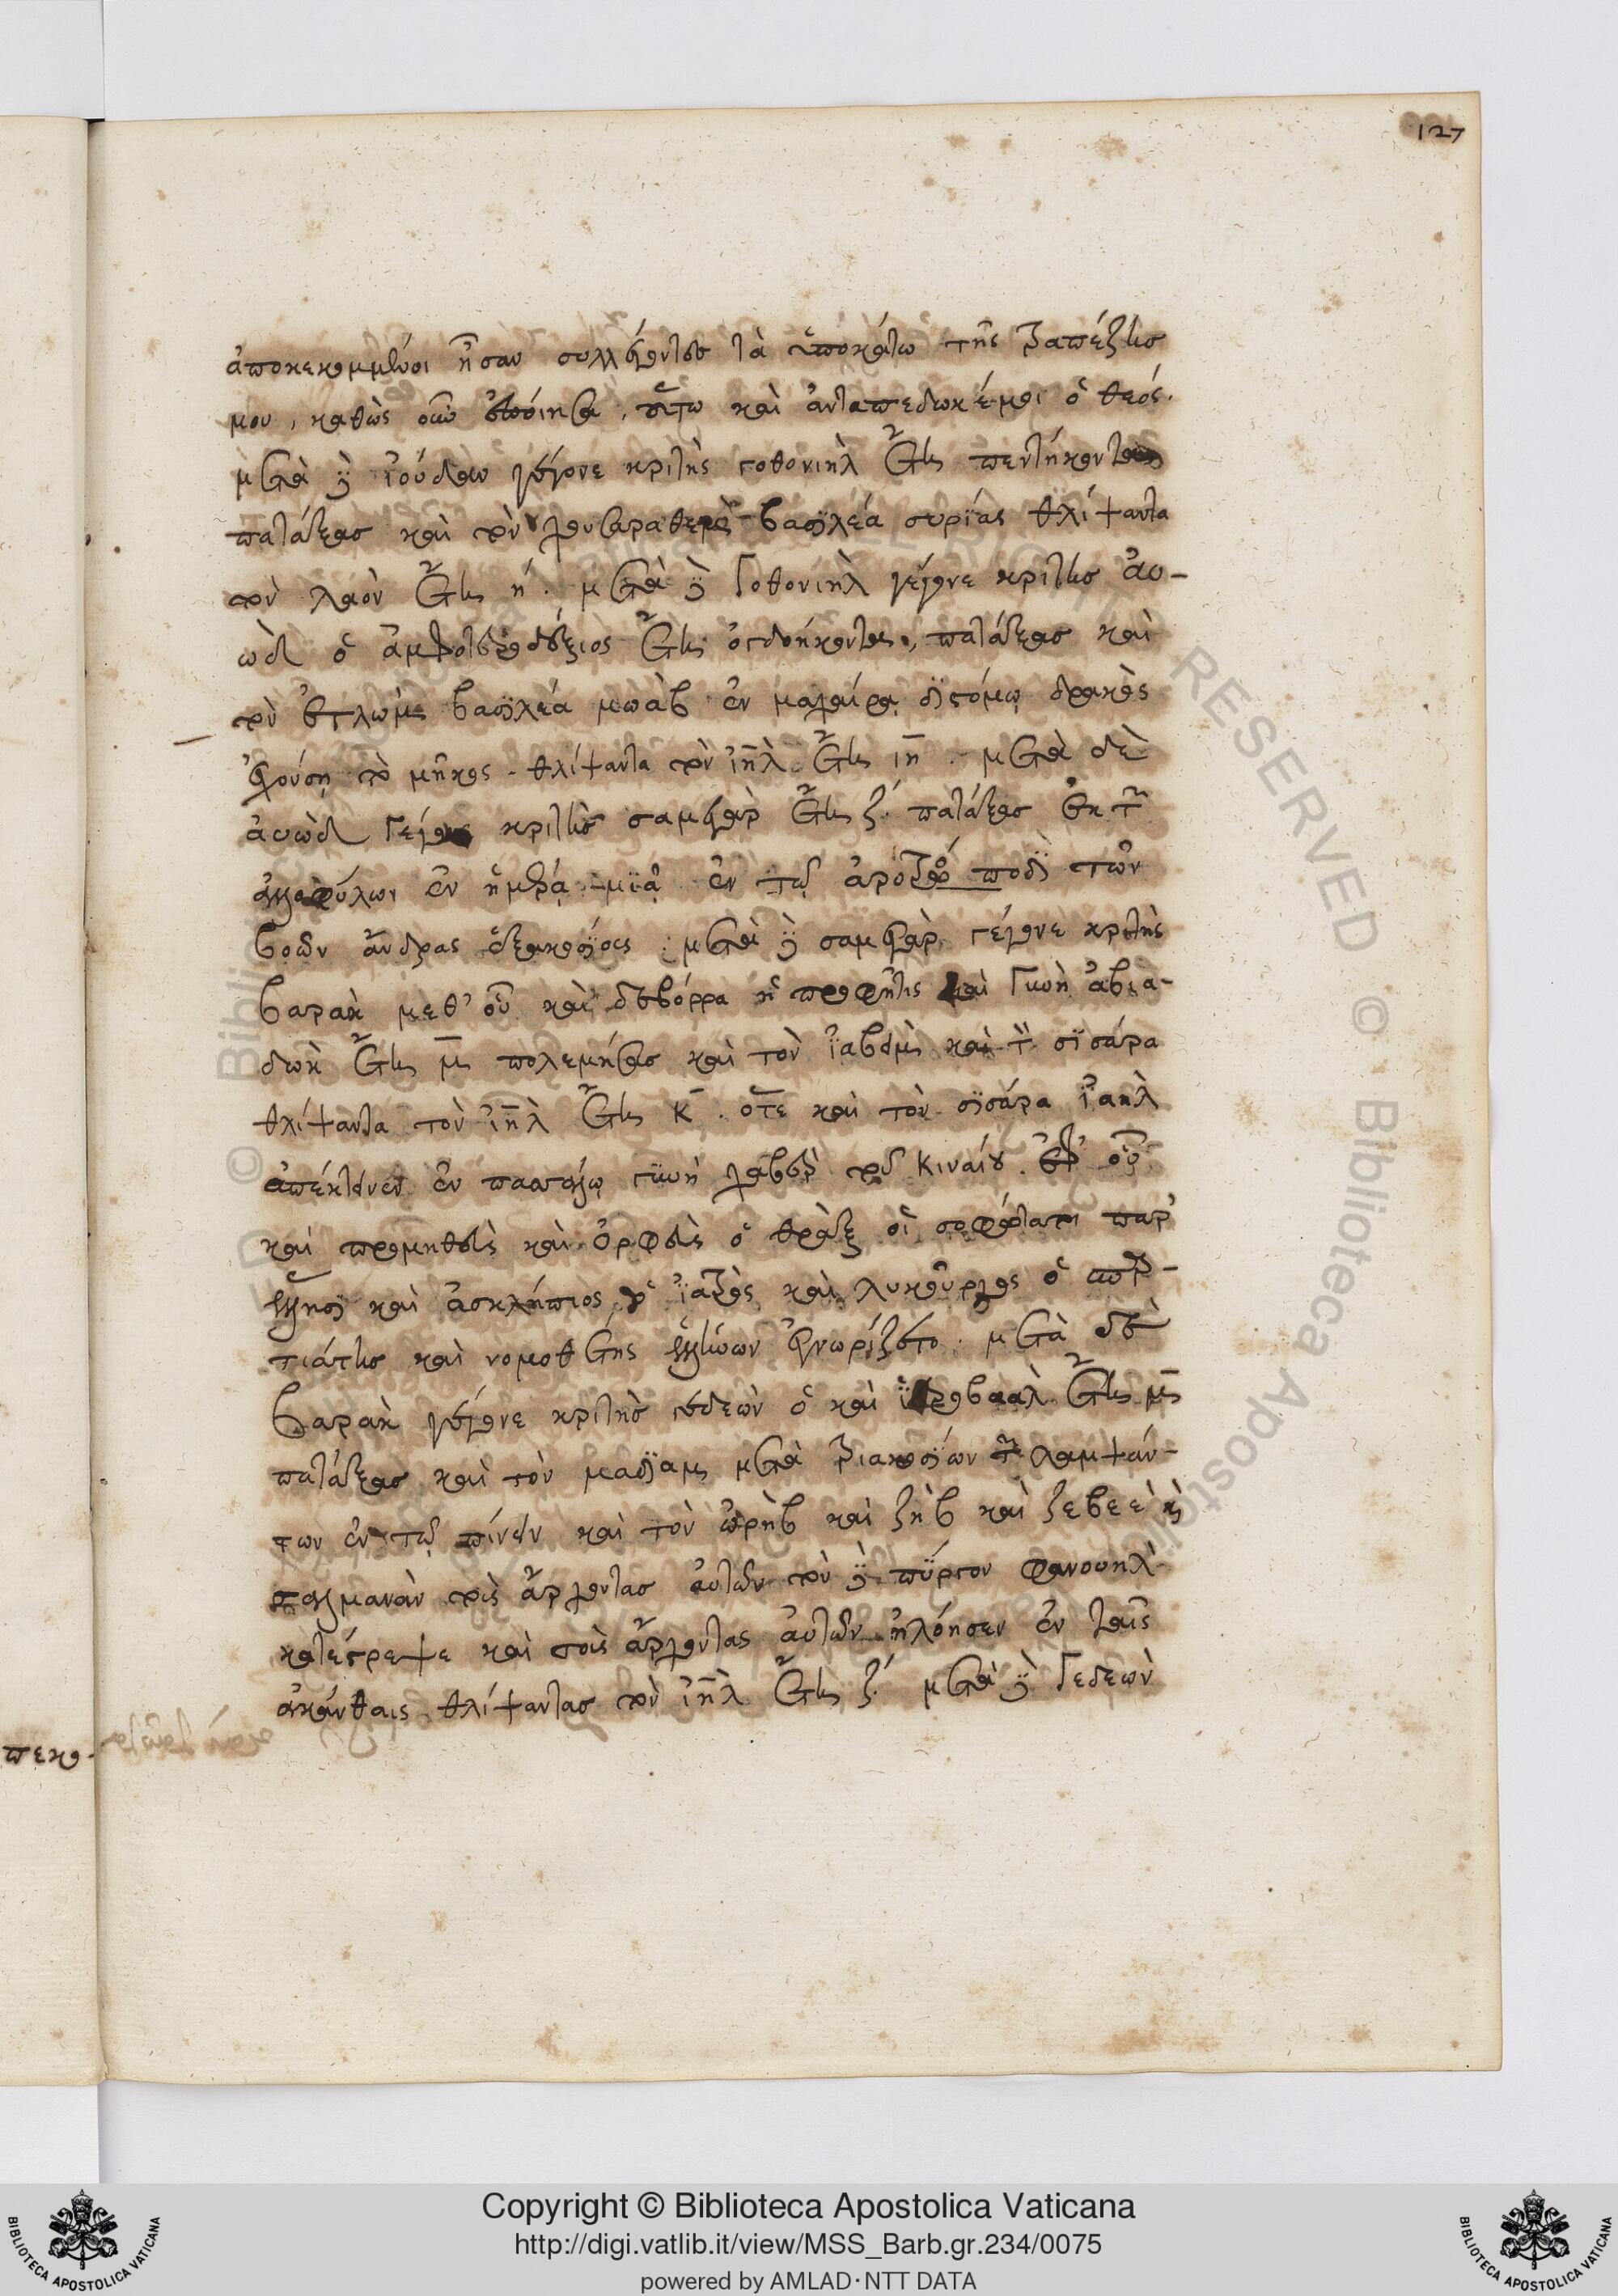 127
ἀποκεκομμένοι ἦσαν συλλέγοντες τὰ ὑποκάτω τῆς τραπέζης
μου, καθὼς οὖν ἐποίησα, οὕτω καὶ ἀνταπέδωκέ μοι ὁ θεός.
μετὰ δὲ ἰούδαν γέγονε κριτὴς γοθονιὴλ ἔτη πεντήκοντα
πατάξας καὶ τὸν χουσαραθεμ βασιλέα συρίας θλίψαντα
τὸν λαὸν ἔτη η΄. μετὰ δὲ Γοθονιὴλ γέγονε κριτὴς ἀο-
ὼδ ὁ ἀμφοτεροδέξιος ἔτη ὀγδοήκοντα, πατάξας καὶ
τὸν ἐγλὼμ βασιλέα μωὰβ ἐν μαχαίρᾳ διστόμῳ δρακὸς
ἐχούσῃ τὸ μῆκος. θλίψαντα τὸν ἰηλ ἔτη ιη. μετὰ δὲ
ἀωὼδ γέγονε κριτὴς σαμεγὰρ ἔτη ζ΄. πατάξας ἐκ τῶν
ἀλλοφύλων ἐν ἡμέρᾳ μιᾷ ἐν τῷ ἀρότρῳ ποδὶ τῶν
βοῶν ἄνδρας ἑξακοσίους. μετὰ δὲ σαμεγὰρ γέγονε κριτὴς
βαρὰκ μεθ’ οὗ καὶ δεβόρρα ἡ προφῆτις καὶ Γυνὴ ἀβια-
δὼκ ἔτη μ πολεμήσας καὶ τὸν ἰαβεὶμ καὶ τὸν σισάρα
θλίψαντα τὸν ἰηλ ἔτη κ. ὅτε καὶ τὸν σισάρα ἰαὴλ
ἀπέκτεινεν ἐν πασσάλῳ γυνὴ χαβὲρ τοῦ κιναίου. ἐφ’ οὗ
καὶ προμηθεὺς καὶ ὀρφεὺς ὁ θρὰξ οἱ σοφώτατοι παρ’
ἕλλησι καὶ ἀσκλήπιος ὁ ἰατρὸς καὶ λυκοῦργος ὁ σπαρ-
τιάτης καὶ νομοθέτης ἑλλήνων ἐγνωρίζετο. μετὰ δὲ
βαρὰκ γέγονε κριτὴς γεδεὼν ὁ καὶ ἱεροβαὰλ ἔτη μ
πατάξας καὶ τὸν μαδιὰμ μετὰ τριακοσίων τῶν λαμψάν-
των ἐν τῷ πίνειν καὶ τὸν ὠρὴβ καὶ ζὴβ καὶ ζεβεὲ καὶ
σαλμανὰν τοὺς ἄρχοντας αὐτῶν τὸν δὲ πύργον φανουηλ
κατέστρεψε καὶ τοὺς ἄρχοντας αὐτῶν ἠλόησεν ἐν ταῖς
ἀκάνθαις θλίψαντας τὸν ἰηλ ἔτη ζ΄. μετὰ δὲ Γεδεὼν
πεκο-
Copyright © Biblioteca Apostolica Vaticana
http://digi.vatlib.it/view/MSS_Barb.gr.234/0075
powered by AMLAD·NTT DATA